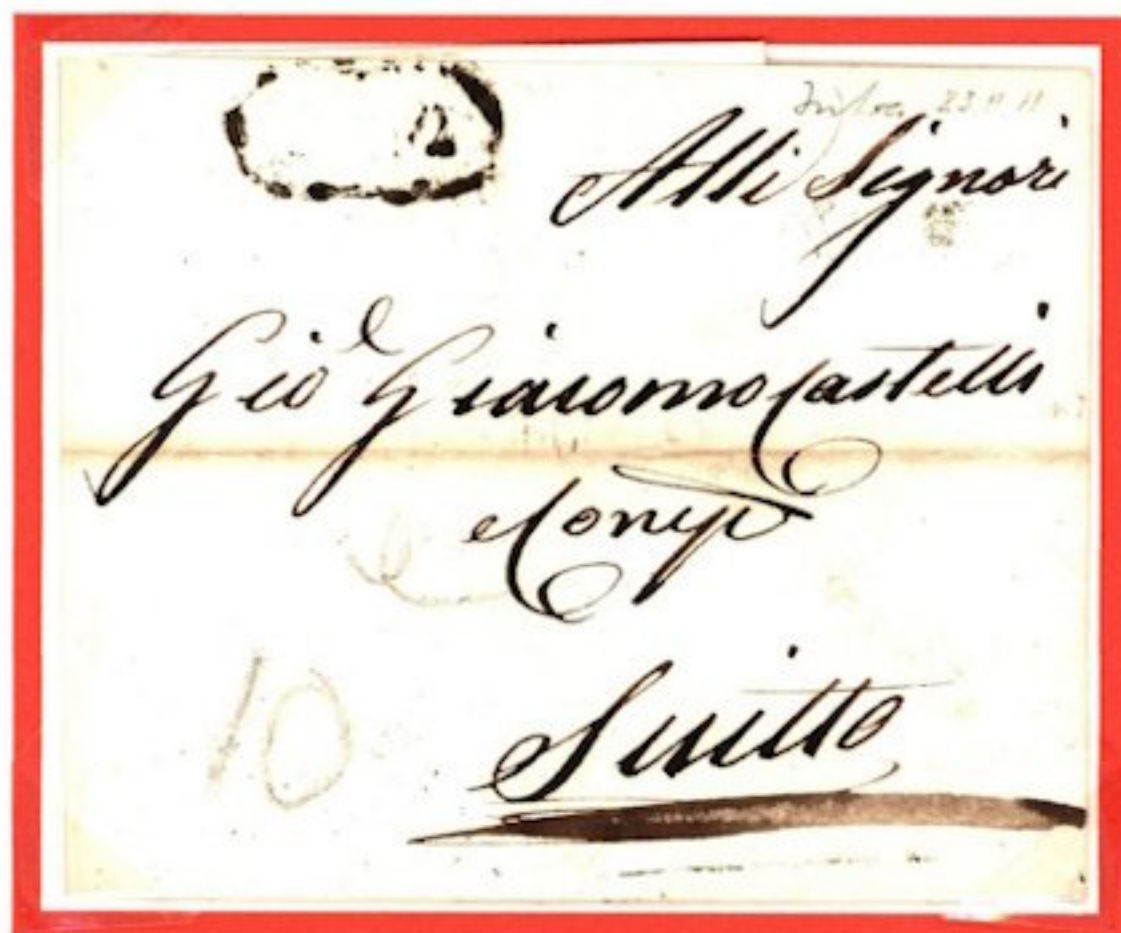 12
Alli Signori
Gio e Giacomo Castelli
e Comp
Suitto
10